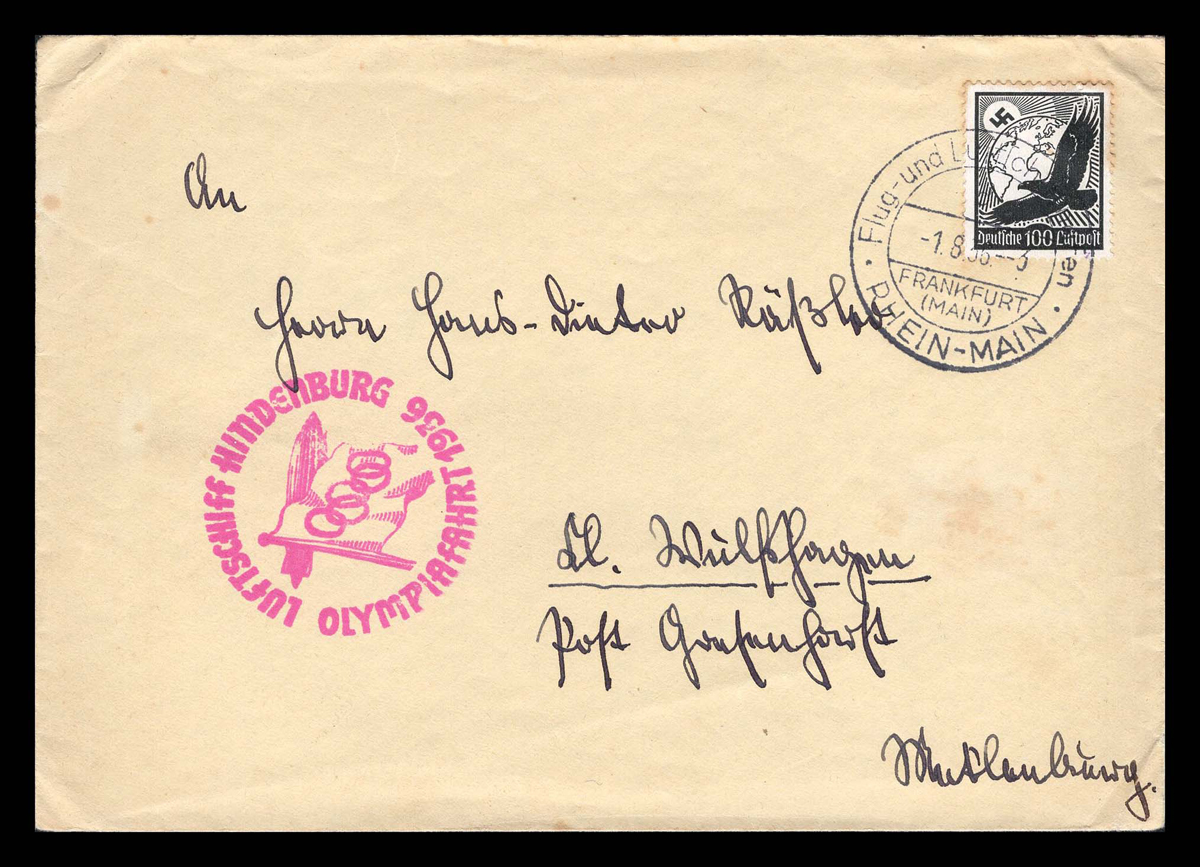 An
Herrn Hans-Dieter Räßler
Kl. Wulfshagen
Post Gresenhorst
Mecklenburg.
Deutsche 100 Luftpost
Flug-und Lu en
-1.8.36.--3
FRANKFURT
(MAIN)
· RHEIN-MAIN ·
LUFTSCHIFF HINDENBURG
OLYMPIAFAHRT 1936